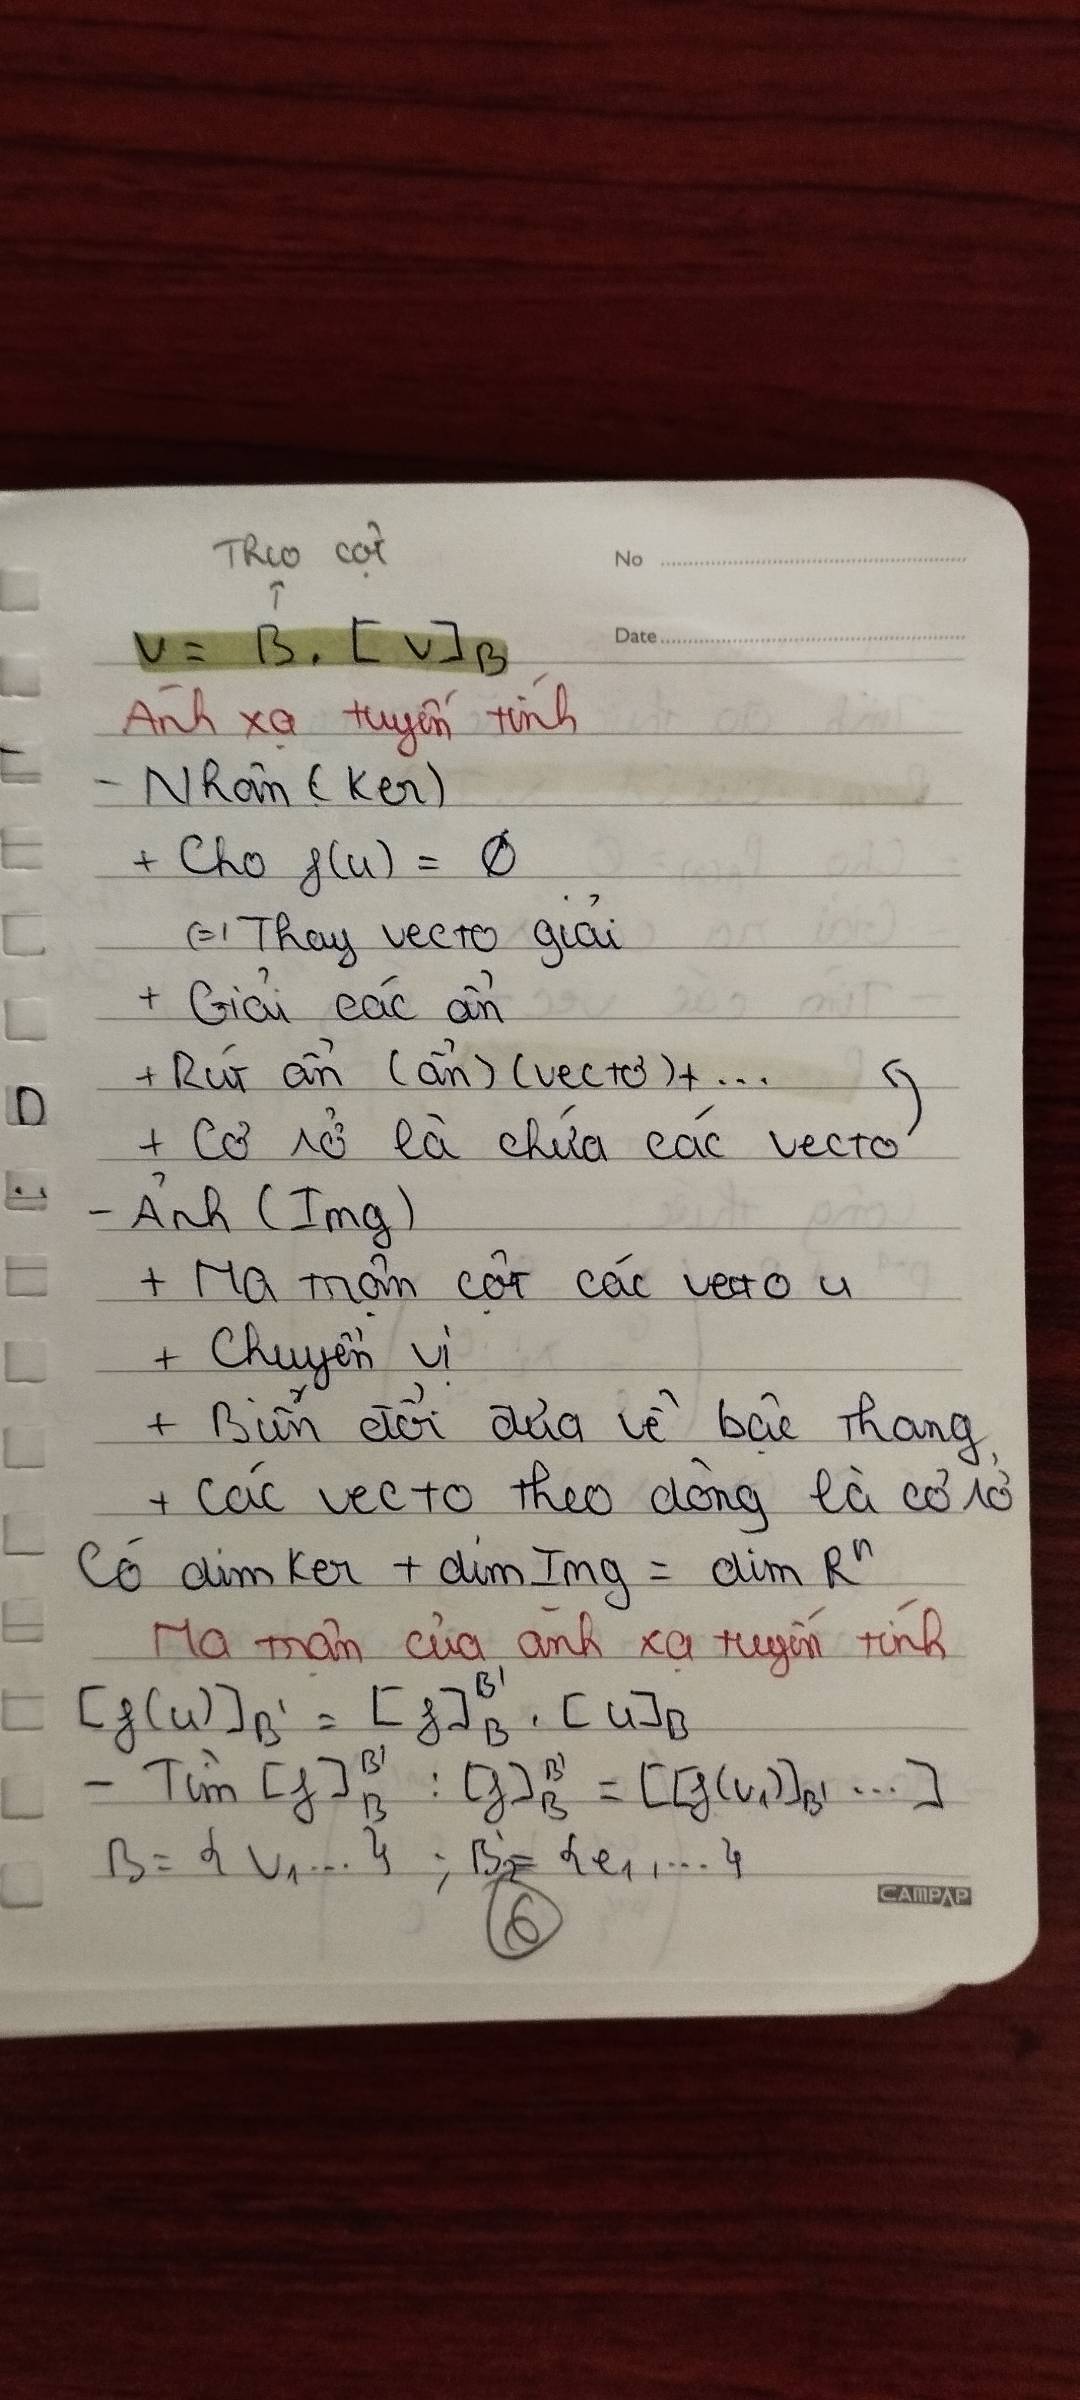 Theo cột
No
↑
v = B. [v]_B
Date
Ánh xạ tuyến tính
- Nhân (Ker)
+ Cho f(u) = ∅
(=) Thay vecto giải
+ Giải các ẩn
+ Rút ẩn (ẩn) (vectơ) + ...
+ Cơ sở là chứa các vecto
- Ảnh (Img)
+ Ma trận cột các vecto u
+ Chuyển vị
+ Biến đổi đưa về bậc thang
+ Các vecto theo dòng là cơ sở
Có dim Ker + dim Img = dim R^n
Ma trận của ánh xạ tuyến tính
[f(u)]_B' = [f]_B^B' . [u]_B
- Tìm [f]_B^B' : [f]_B^B' = [[f(v_1)]_B' ...]
B = {v_1 ... } ; B' = {e_1, ... }
CAMPAP
6